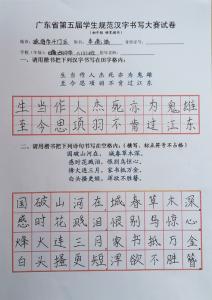 广东省第五届学生规范汉字书写大赛试卷
一、请用楷书把下列汉字书写在田字格内：
生当作人杰死亦为鬼雄
至今思项羽不肯过江东
生当作人杰死亦为鬼雄
至今思项羽不肯过江东
二、请用楷书把下列诗句书写在空格内。（横写，标点符号不占格）
国破山河在，城春草木深。
感时花溅泪，恨别鸟惊心。
烽火连三月，家书抵万金。
白头搔更短，浑欲不胜簪。
国破山河在城春草木深
感时花溅泪恨别鸟惊心
烽火连三月家书抵万金
白头搔更短浑欲不胜簪